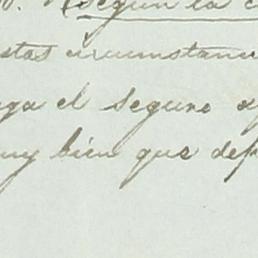 según la c
stas circunstanc
ga el seguro
muy bien que def